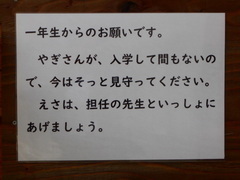 一年生からのお願いです。
やぎさんが、入学して間もないの
で、今はそっと見守ってください。
えさは、担任の先生といっしょに
あげましょう。